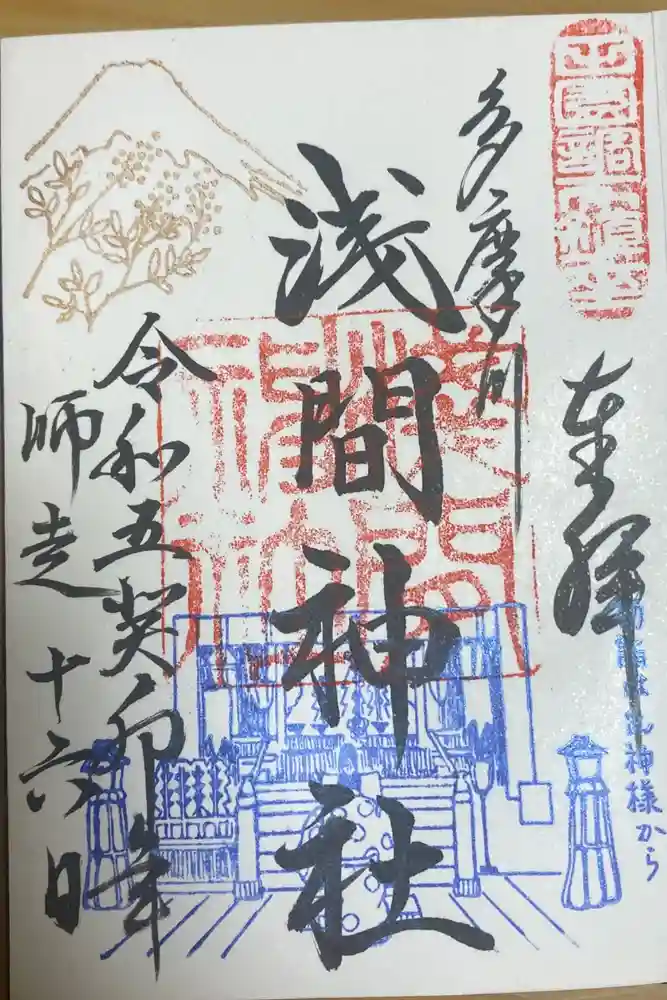 奉拝
多摩川
浅間神社
令和五癸卯年
師走十六日
神様から